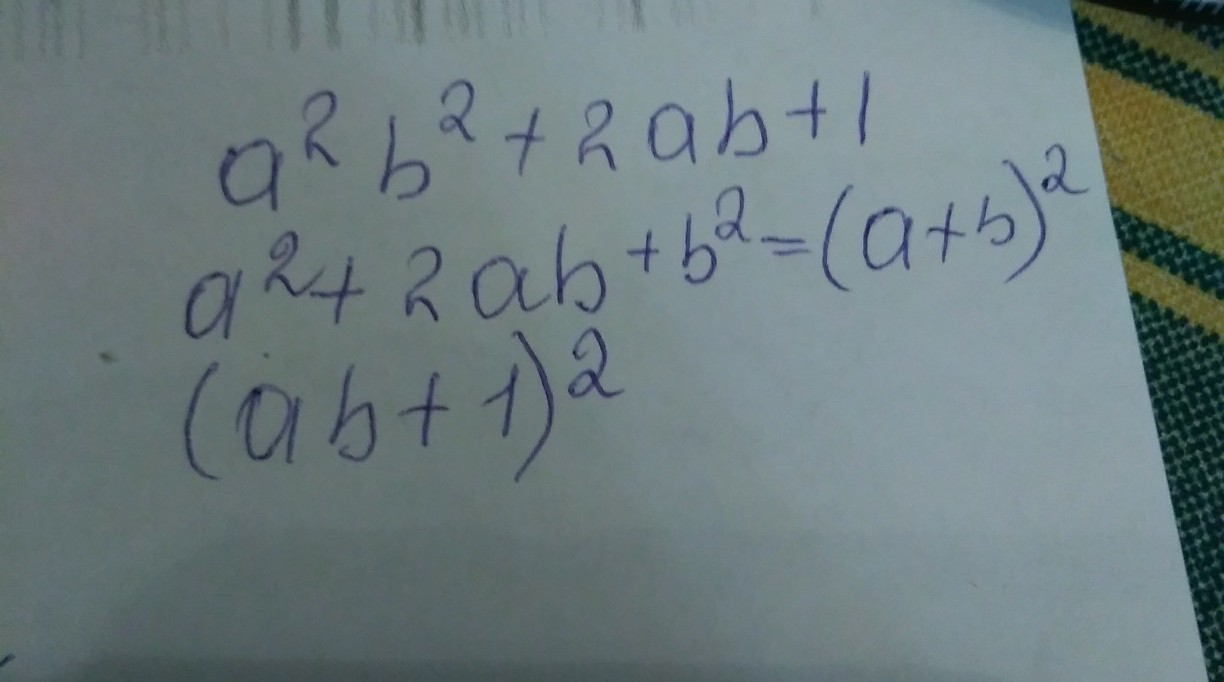 a² b² + 2ab + 1
a² + 2ab + b² = (a+b)²
(ab + 1)²